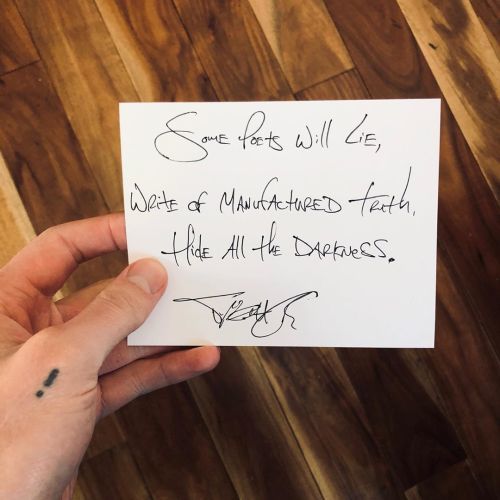 Some Poets Will Lie,
Write of Manufactured Truth,
Hide All the Darkness.